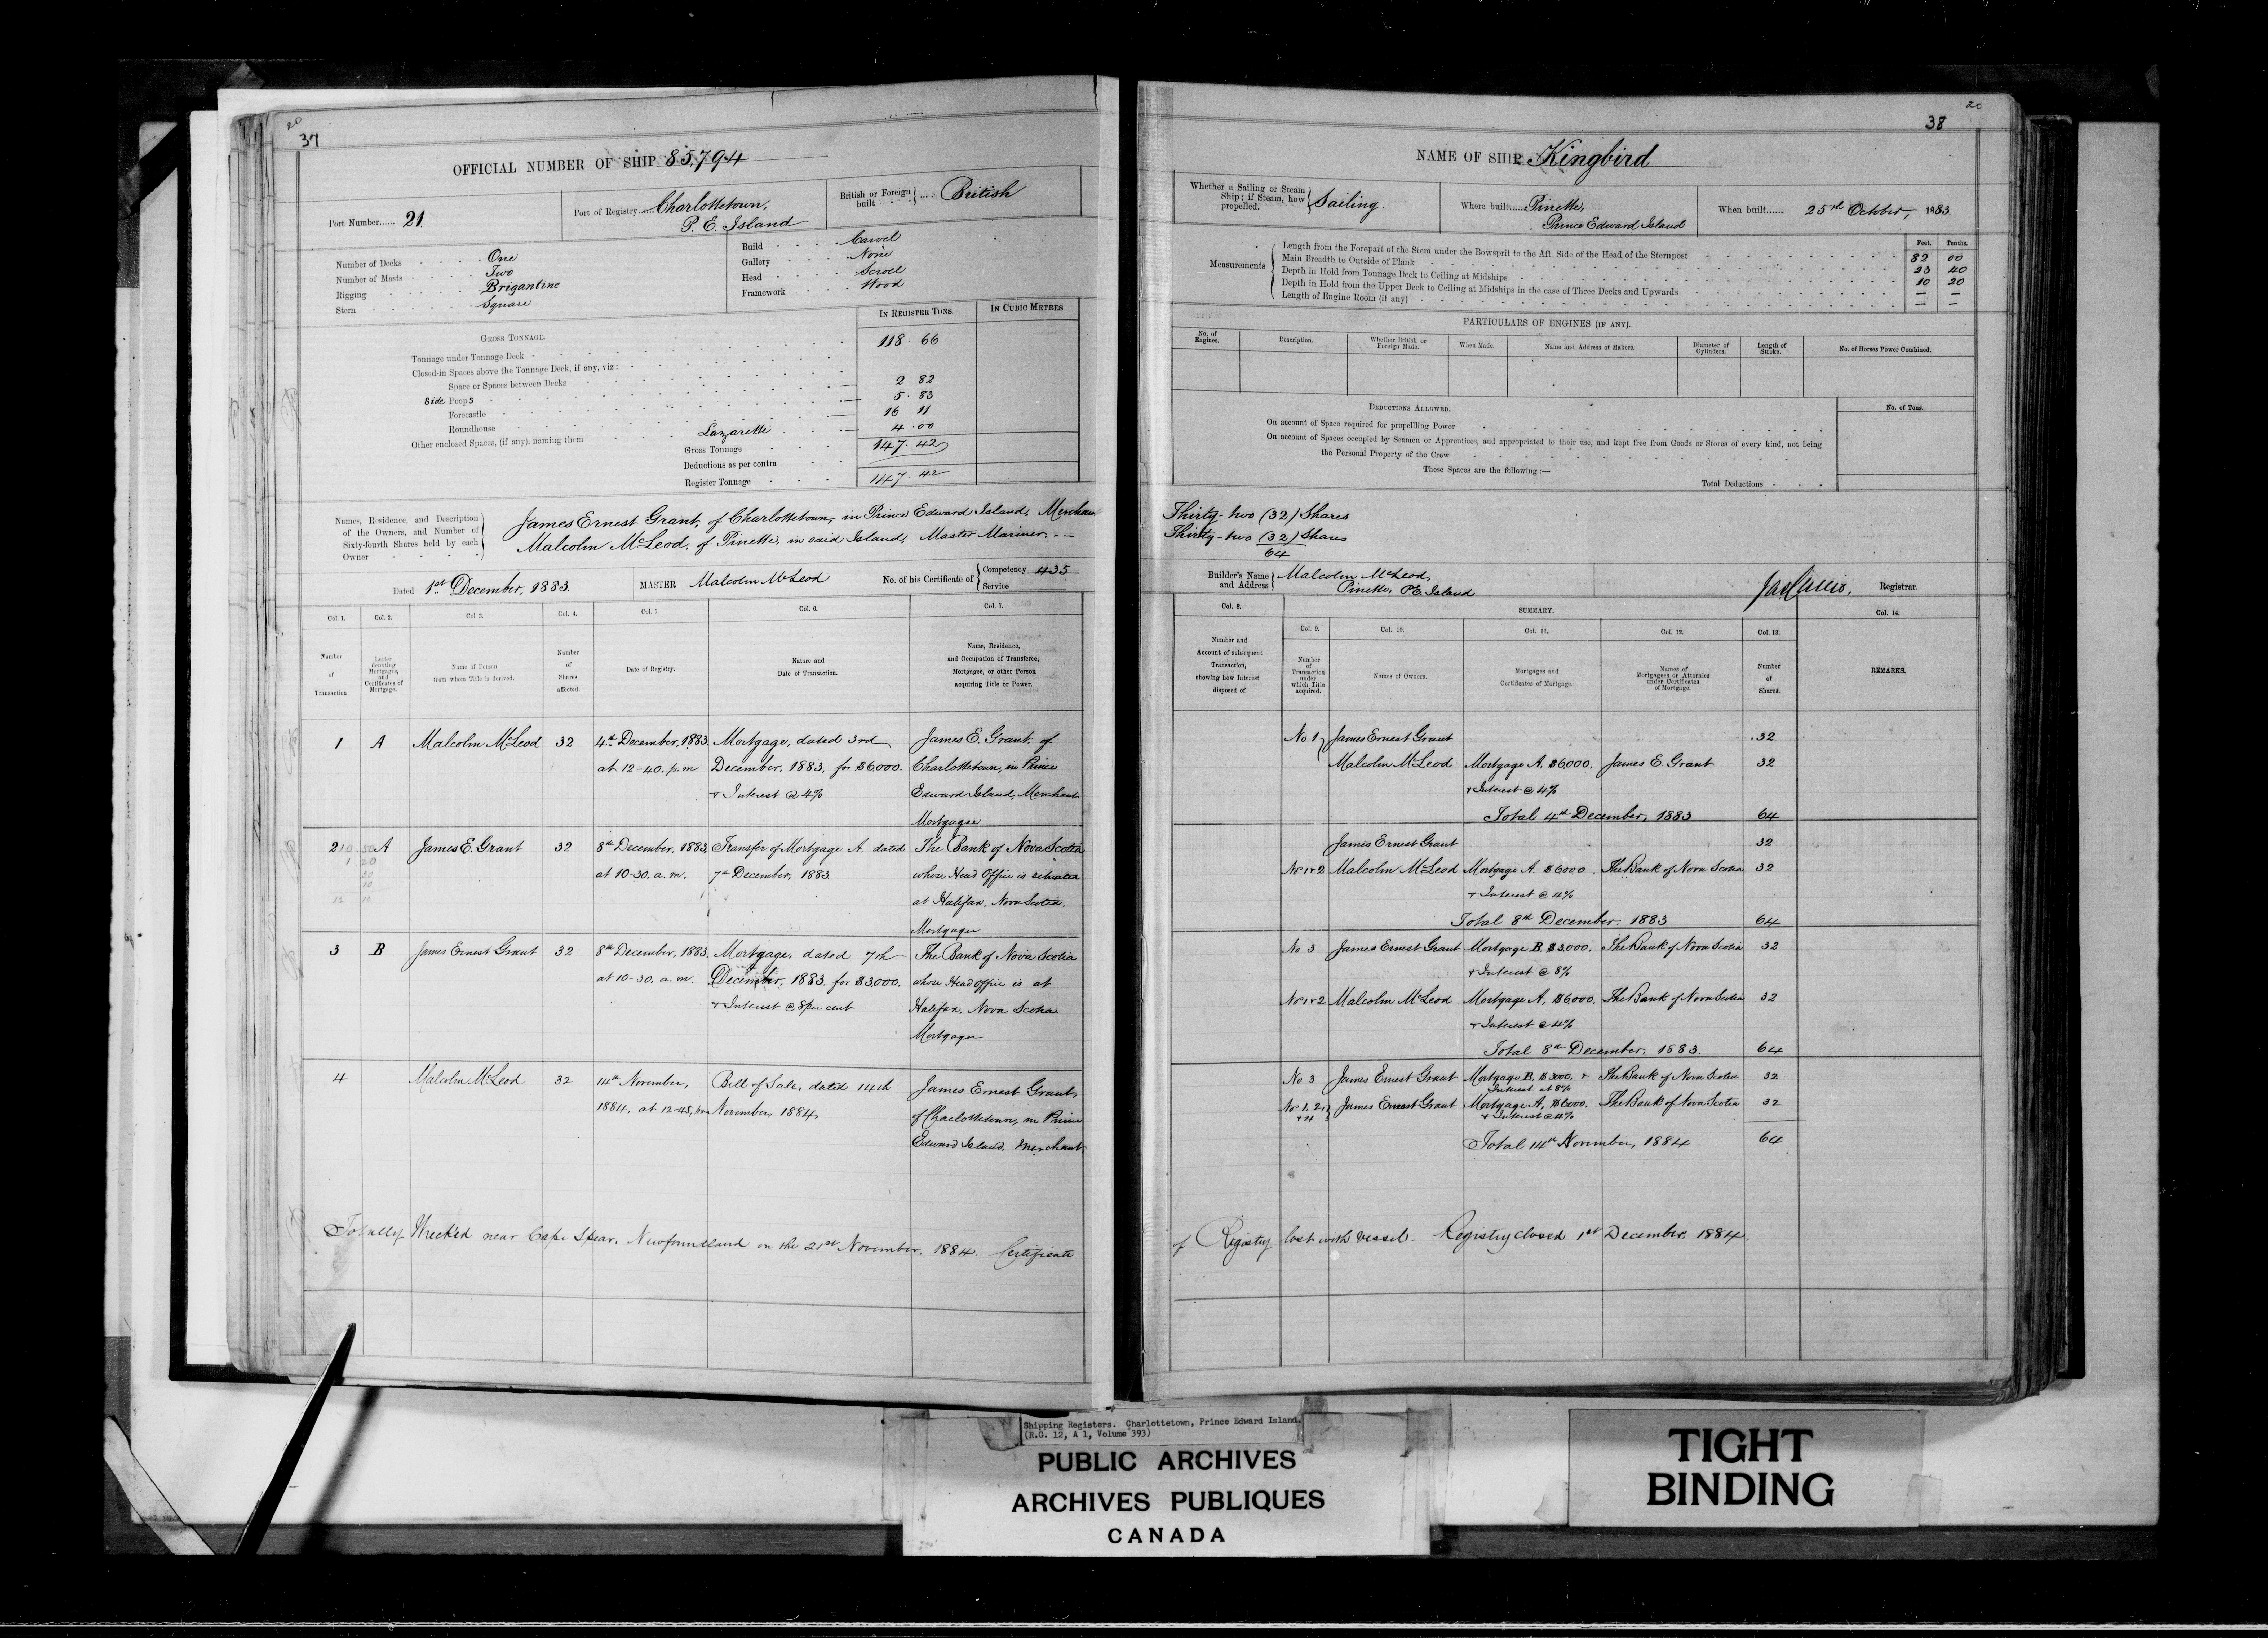 20
37
OFFICIAL NUMBER OF SHIP 85,794
Port Number...... 21.
Port of Registry...... Charlottetown,
P. E. Island
British or Foreign built .... British
Number of Decks One
Number of Masts Two
Rigging Brigantine
Stern Square
Build Carvel
Gallery None
Head Scroll
Framework Wood
GROSS TONNAGE.
IN REGISTER TONS.
IN CUBIC METRES
Tonnage under Tonnage Deck 118. 66
Closed-in Spaces above the Tonnage Deck, if any, viz:
Space or Spaces between Decks
Side Poops 2. 82
Forecastle 5. 83
Roundhouse 16. 11
Other enclosed Spaces, (if any), naming them Lazarette 4. 00
Gross Tonnage 147. 42
Deductions as per contra
Register Tonnage 147. 42
Names, Residence, and Description
of the Owners, and Number of
Sixty-fourth Shares held by each
Owner
James Ernest Grant, of Charlottetown, in Prince Edward Island, Merchant
Malcolm McLeod, of Pinette, in said Island, Master Mariner. - —
Dated 1st December, 1883
MASTER Malcolm McLeod
No. of his Certificate of Competency 435
Service
Col. 1. Col. 2. Col 3. Col. 4. Col. 5. Col. 6. Col. 7.
Number of Transaction
Letter denoting Mortgages, and Certificates of Mortgage.
Name of Person from whom Title is derived.
Number of Shares affected.
Date of Registry.
Nature and Date of Transaction.
Name, Residence, and Occupation of Transferee, Mortgagee, or other Person acquiring Title or Power.
1 A Malcolm McLeod 32 4th December, 1883. Mortgage, dated 3rd James E. Grant, of
at 12-40. p.m December, 1883, for $6000. Charlottetown, in Prince
+ Interest @ 4% Edward Island, Merchant
Mortgagee
2 A James E. Grant 32 8th December, 1883, Transfer of Mortgage A. dated The Bank of Nova Scotia
at 10-30. a. m. 7th December, 1883 whose Head Office is situated
at Halifax, Nova Scotia,
Mortgagee
3 B James Ernest Grant 32 8th December, 1883. Mortgage, dated 7th The Bank of Nova Scotia
at 10-30. a. m. December, 1883. for $3000. whose Head Office is at
+ Interest @ 8 per cent Halifax, Nova Scotia
Mortgagee
4 Malcolm McLeod 32 14th November, Bill of Sale, dated 14th James Ernest Grant,
1884, at 12-45, p.m November, 1884, of Charlottetown, in Prince
Edward Island, Merchant
Totally Wrecked near Cape Spear, Newfoundland on the 21st November, 1884. Certificate
20
38
NAME OF SHIP Kingbird
Whether a Sailing or Steam
Ship; if Steam, how
propelled.
Sailing
Where built...... Pinette,
Prince Edward Island
When built...... 25th October, 1883.
Measurements
Feet. Tenths.
Length from the Forepart of the Stem under the Bowsprit to the Aft. Side of the Head of the Sternpost 82 00
Main Breadth to Outside of Plank 23 40
Depth in Hold from Tonnage Deck to Ceiling at Midships 10 20
Depth in Hold from the Upper Deck to Ceiling at Midships in the case of Three Decks and Upwards — —
Length of Engine Room (if any) — —
PARTICULARS OF ENGINES (IF ANY).
No. of Engines.
Description.
Whether British or Foreign Made.
When Made.
Name and Address of Makers.
Diameter of Cylinders.
Length of Stroke.
No. of Horses Power Combined.
DEDUCTIONS ALLOWED.
No. of Tons.
On account of Space required for propelling Power
On account of Spaces occupied by Seamen or Apprentices, and appropriated to their use, and kept free from Goods or Stores of every kind, not being
the Personal Property of the Crew
These Spaces are the following :—
Total Deductions
Thirty-two (32) Shares
Thirty-two (32) Shares
64
Builder's Name and Address
Malcolm McLeod,
Pinette, P.E. Island
Registrar.
Col. 8.
SUMMARY.
Col. 14.
Col. 9. Col. 10. Col. 11. Col. 12. Col. 13.
Number and Account of subsequent Transaction, showing how Interest disposed of.
Number of Transaction under which Title acquired.
Names of Owners.
Mortgages and Certificates of Mortgage.
Names of Mortgagees or Attornies under Certificates of Mortgage.
Number of Shares.
REMARKS.
No 1 James Ernest Grant 32
Malcolm McLeod Mortgage A. $6000. James E. Grant 32
+ Interest @ 4%
Total 4th December, 1883 64
James Ernest Grant 32
No 1+2 Malcolm McLeod Mortgage A. $6000 The Bank of Nova Scotia 32
+ Interest @ 4%
Total 8th December. 1883 64
No 3 James Ernest Grant Mortgage B. $3,000. The Bank of Nova Scotia 32
+ Interest @ 8%
No 1+2 Malcolm McLeod Mortgage A, $6,000. The Bank of Nova Scotia 32
+ Interest @ 4%
Total 8th December, 1883. 64
No 3 James Ernest Grant Mortgage B. $3000, + The Bank of Nova Scotia 32
Interest at 8%
No 1, 2, +4 James Ernest Grant Mortgage A, $6000. The Bank of Nova Scotia 32
+ Interest @ 4%
Total 14th November, 1884 64
of Registry lost with vessel. Registry closed 1st December, 1884.
Shipping Registers. Charlottetown, Prince Edward Island.
(R.G. 12, A 1, Volume 393)
PUBLIC ARCHIVES
ARCHIVES PUBLIQUES
CANADA
TIGHT
BINDING